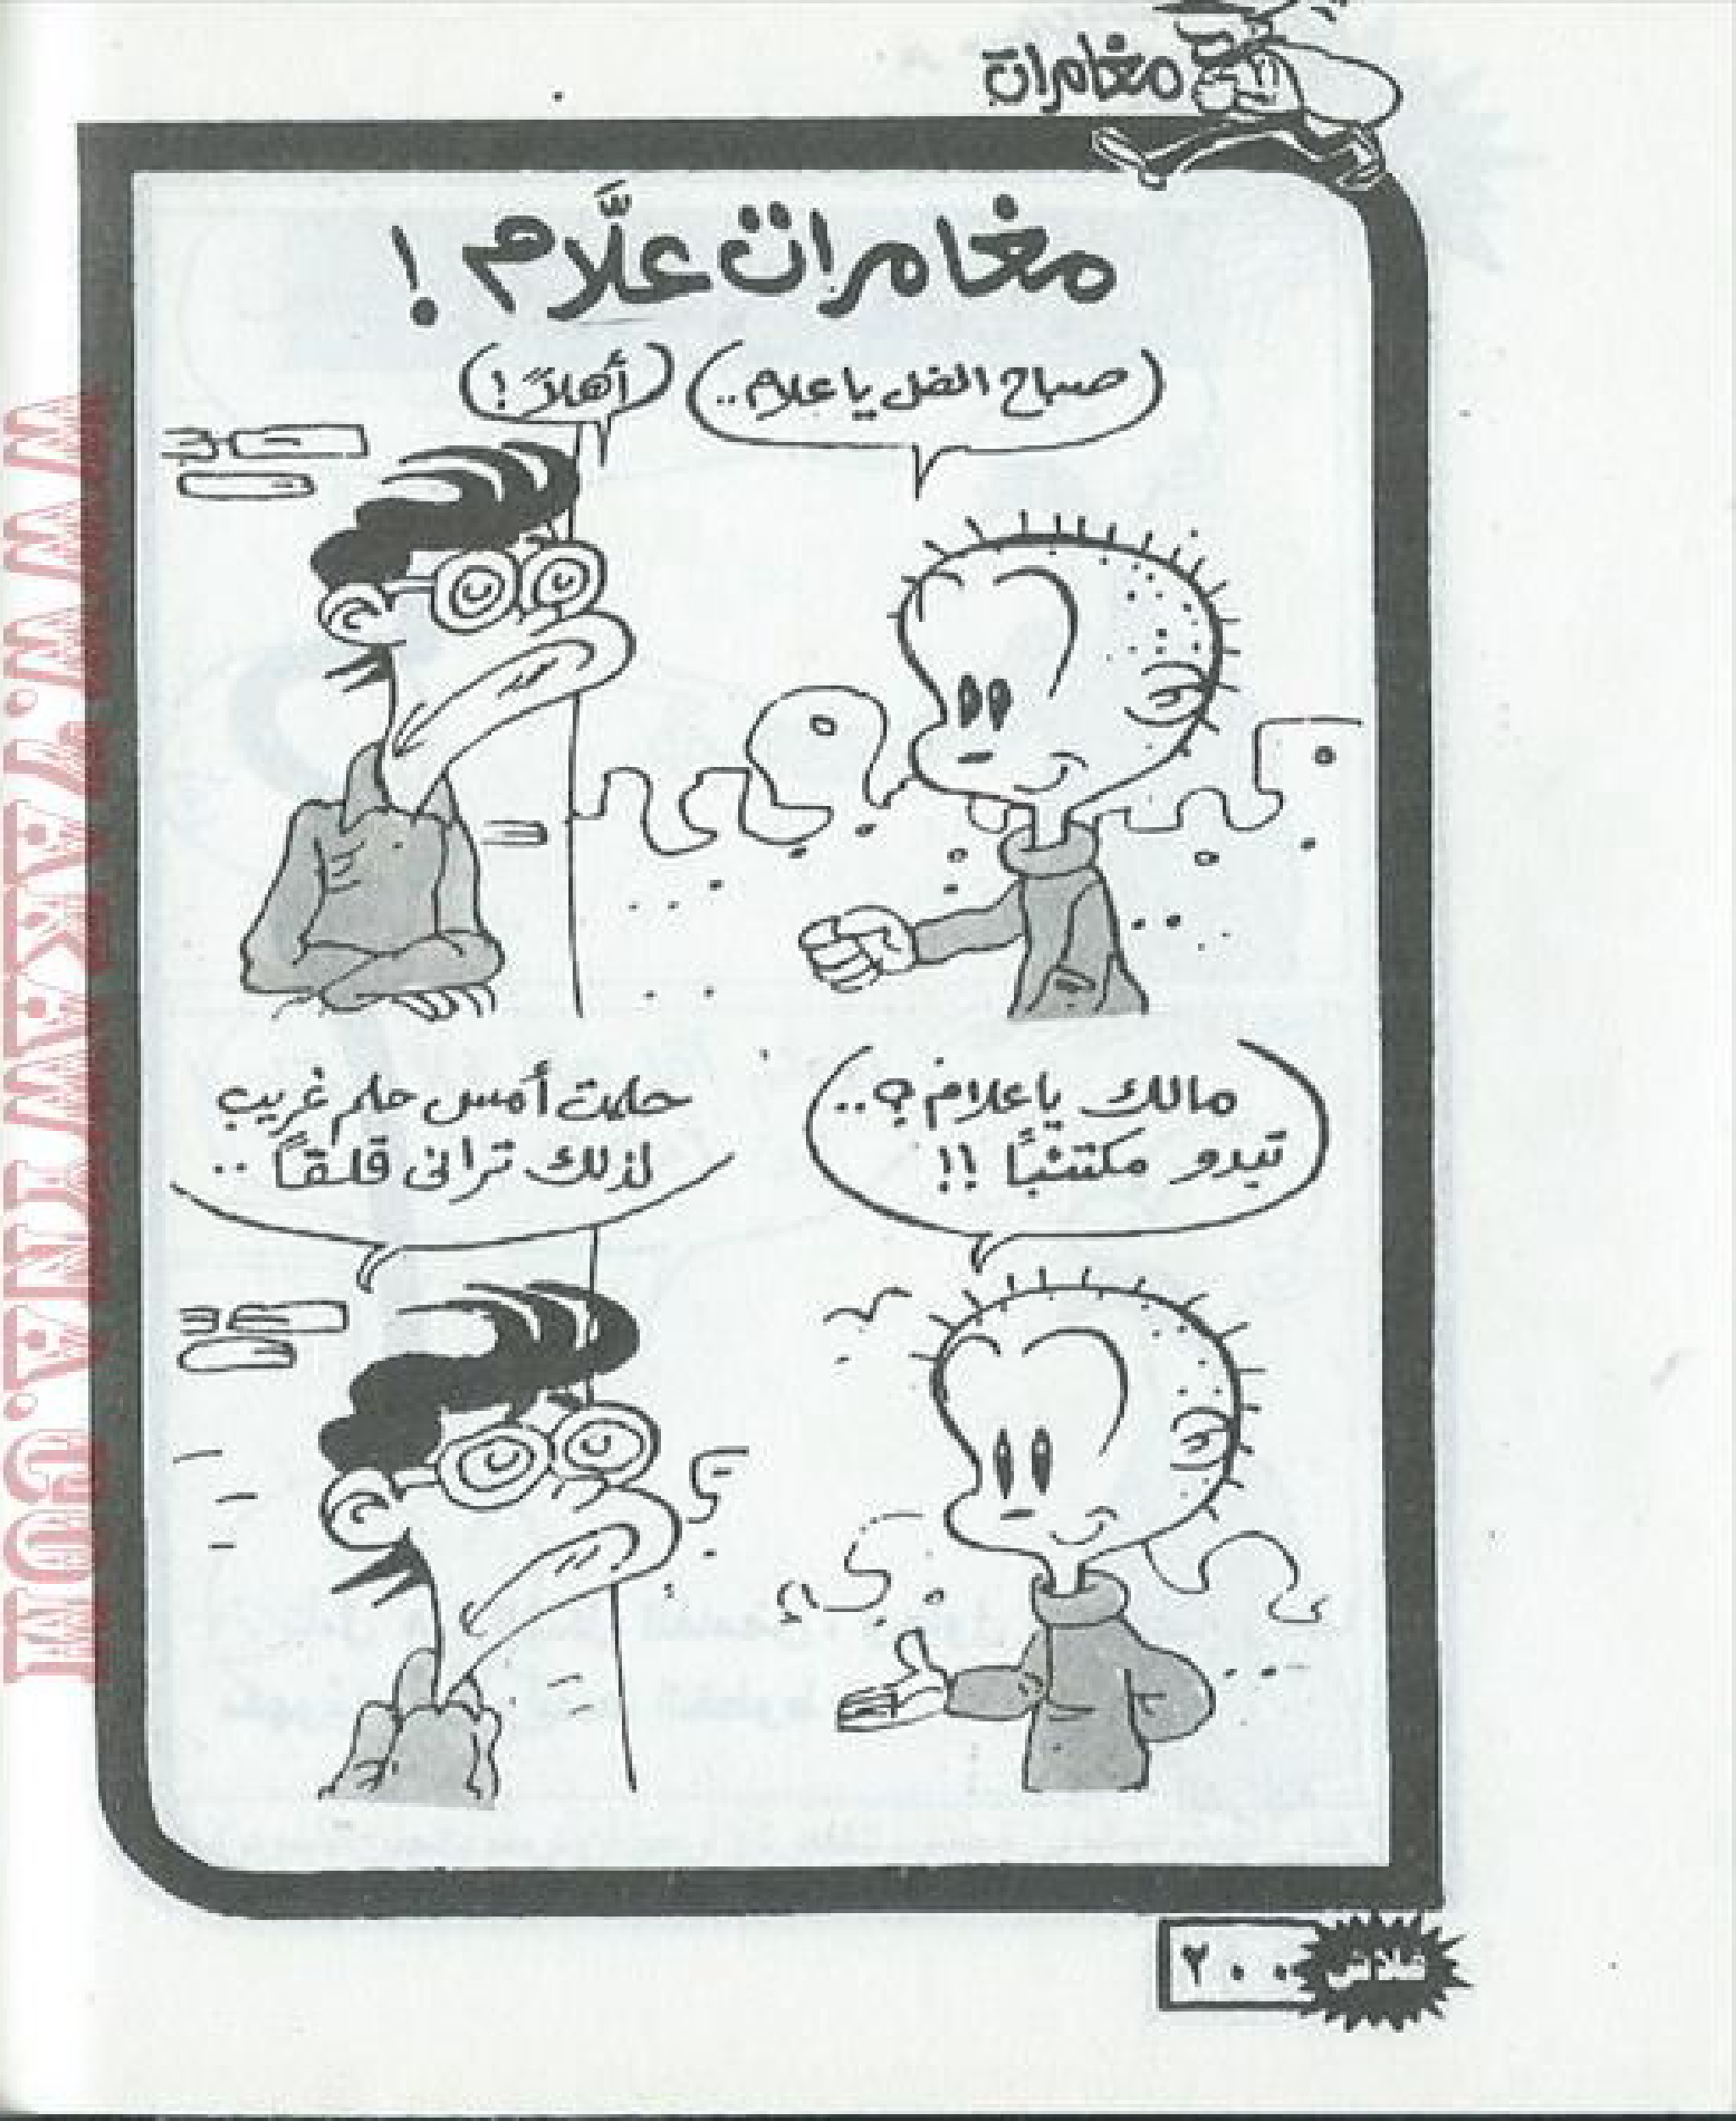 مغامرات
مغامرات علَّام !
صباح الفل يا علام ..
أهلاً !
مالك يا علام ؟ ..
تبدو مكتئباً !!
حلمت أمس حلم غريب
لذلك ترانى قلقاً ..
فلاش
٢٠٠
WWW.ZAKAWINAA.COM